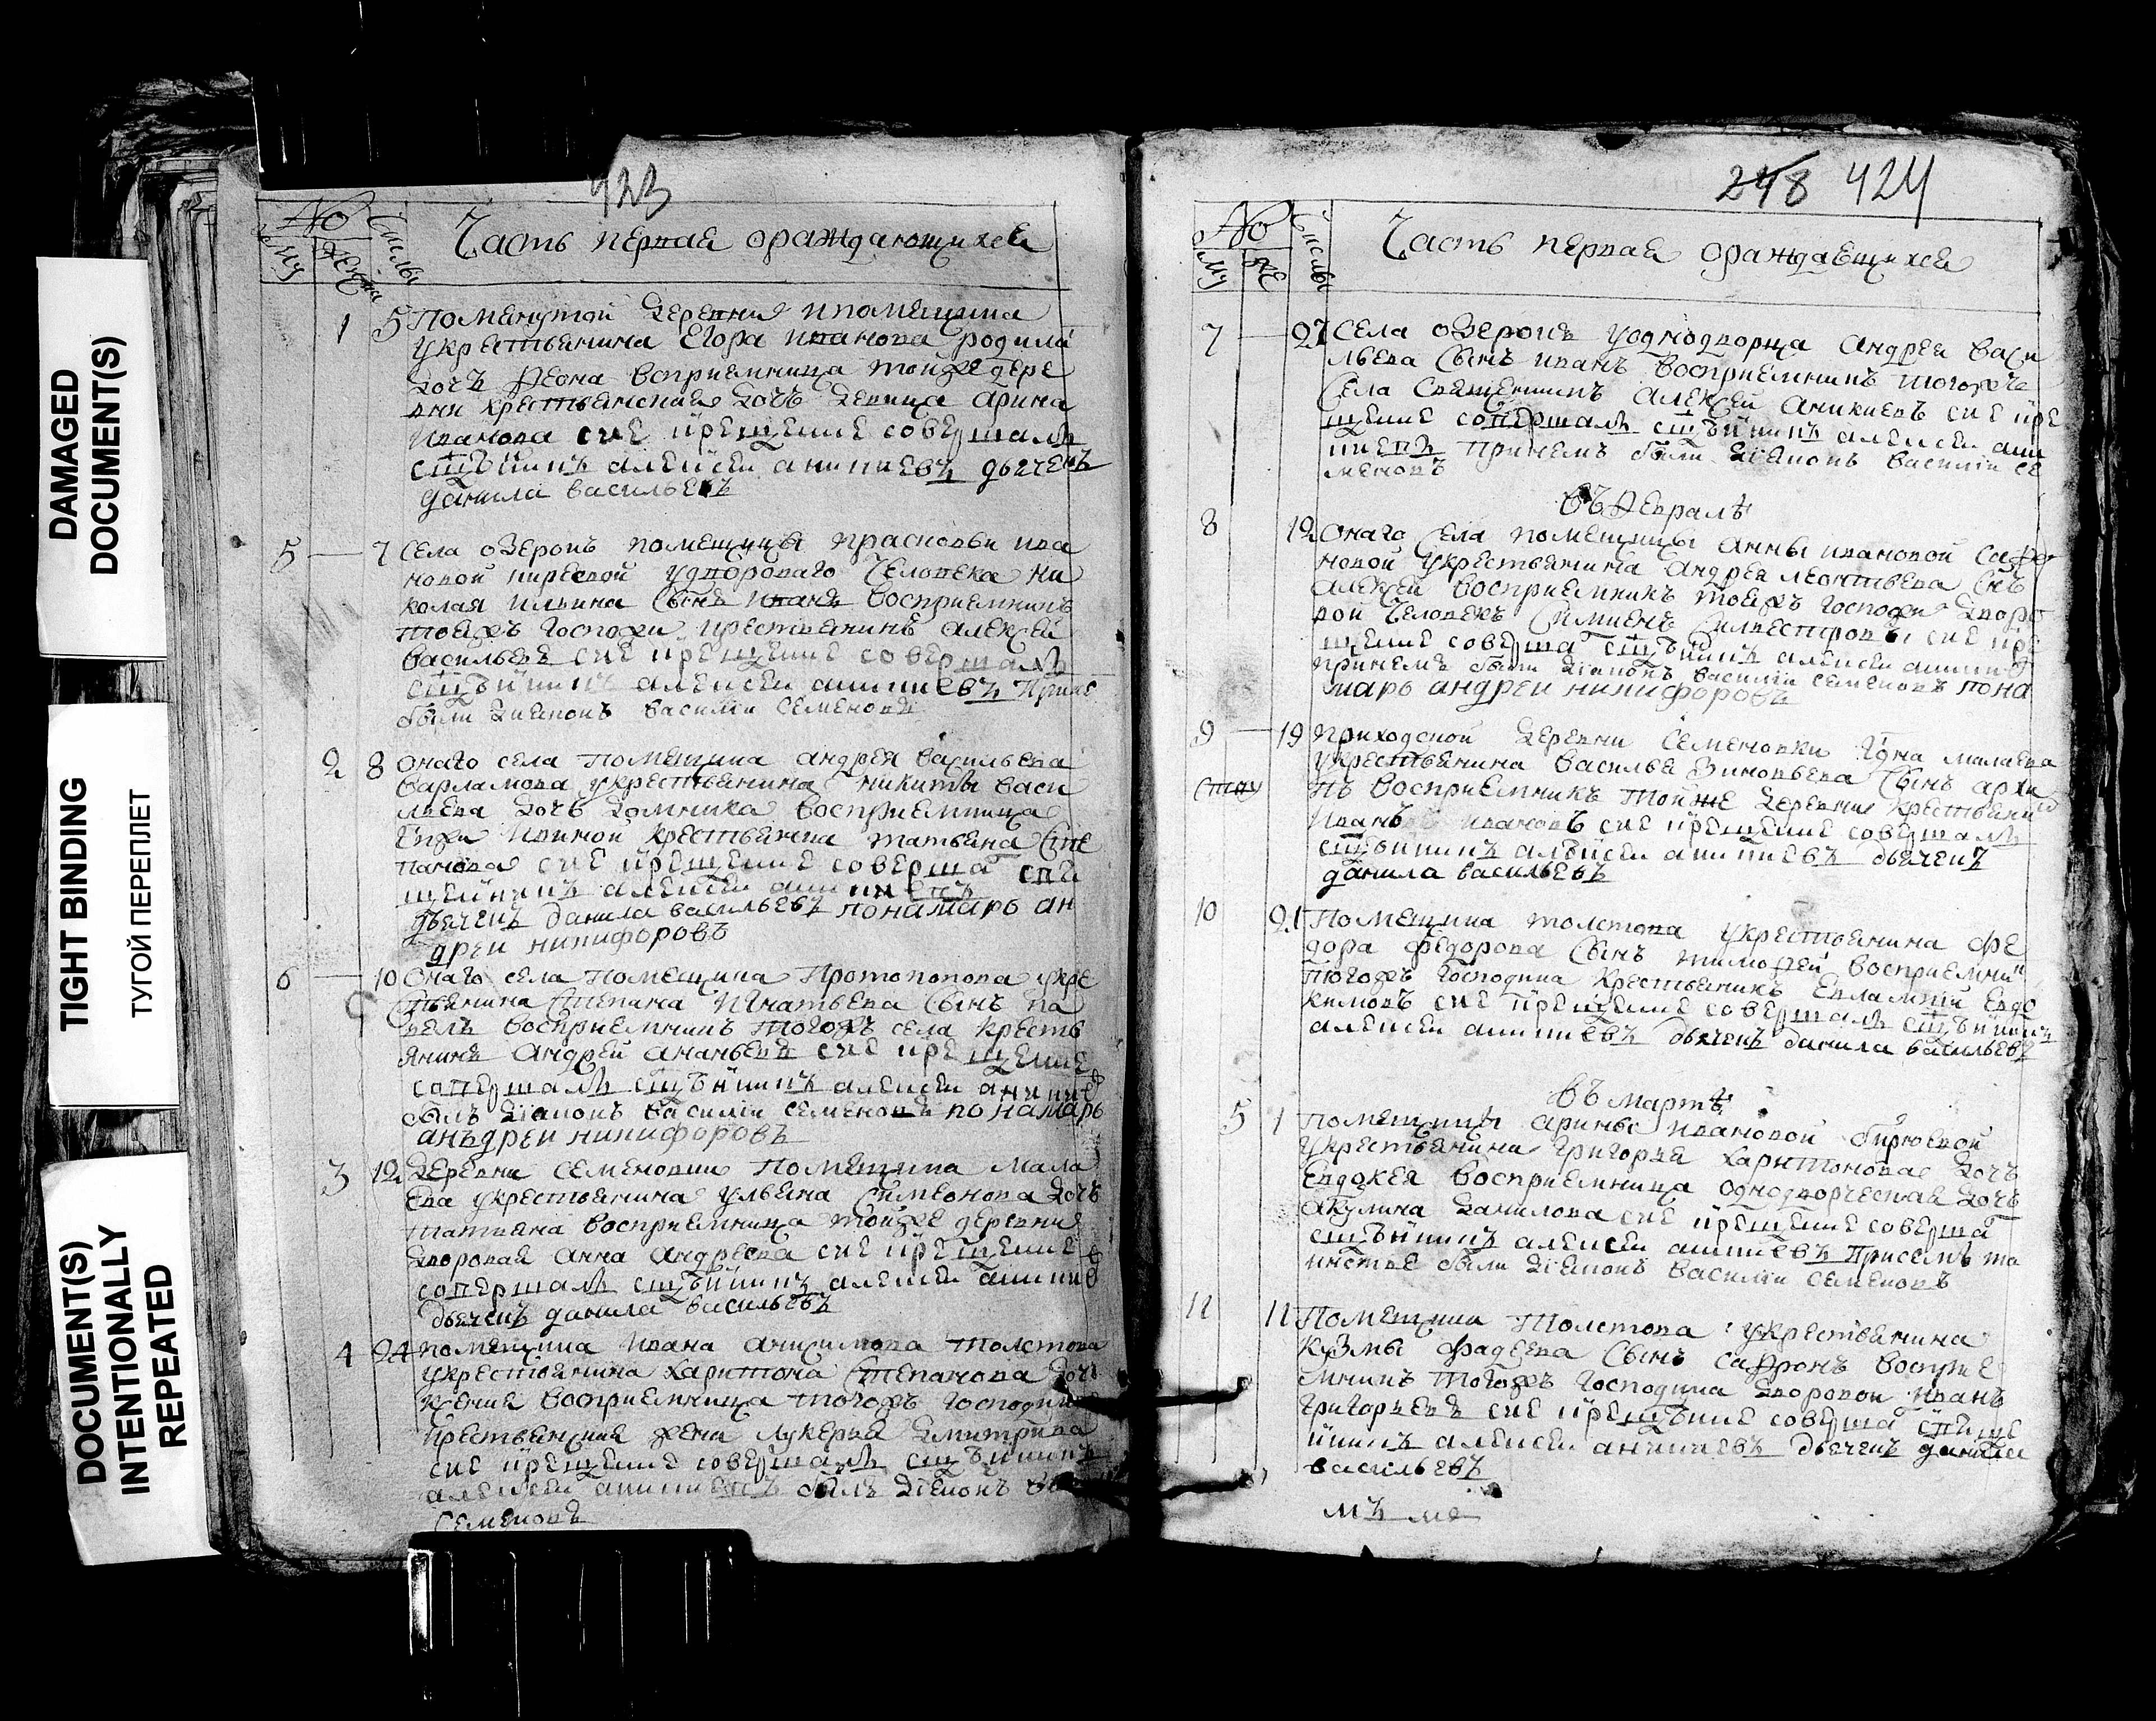 DAMAGED
DOCUMENT(S)
TIGHT BINDING
ТУГОЙ ПЕРЕПЛЕТ
DOCUMENT(S)
INTENTIONALLY
REPEATED
423
№
Числы
Часть первая ораждающихся
1 5 Поменутой деревни ипомещика
укрестьянина Егора иванова родила
дочь Ѳеона восприемница тойже дере
вни крестьянская дочь девица арина
Иванова сие крещение совершалъ
данила васильевъ
5 7 Села oзерокъ помещицы прасковьи ива
новой киреевой удвороваго Человека ни
колая ильина Сынъ иванъ восприемникъ
тоежъ Госпожи крестьянинъ алексей
васильевъ сие крещение совершалъ
были диаконъ василіи семеновъ
2 8 Онаго села помещика андрея васильева
варламова укрестьянина никиты васи
льева дочь домника восприемница
крестьянка татьяна Сте
панова сие крещение соверша свя
щенникъ алексеи аникиевъ
дьячекъ данила васильевъ понамарь ан
дреи никифоровъ
6 10 Онаго села помещика Протопопова укре
стьянина Игнатьева Сынъ па
велъ восприемникъ тогожъ села кресть
янинъ андрей ананьевъ сие крещение
совершалъ алексеи аникие
былъ диаконъ василіи семеновъ понамарь
анъдреи никифоровъ
3 12 Деревни семеновки помещика мала
ева укрестьянина ульяна Симеонова дочь
татьяна восприемница тойже деревни
дворовая анна андреева сие крещение
совершалъ алексеи аникие
дьячекъ данила васильевъ
4 24 помещика ивана толстова
укрестьянина харитона Степанова дочь
Ксения восприемница тогожъ господина
крестьянская жена лукерья дмитриева
сие крещение совершалъ
алексеи аникиевъ былъ диаконъ
Семеновъ
248 424
№
Числы
Часть первая ораждаещихся
7 27 Села oзерокъ уоднодворца андрея васи
льева Сынъ иванъ восприемникъ тогожъ
Села Священникъ алексей аникиевъ сие кре
щение совершалъ алексеи ани
киевъ Принемъ были диаконъ василіи се
меновъ
въ Ѳевралѣ
8 12 Онаго Села помещицы анны ивановой Сафо
новой укрестьянина андрея леонтьева Снъ
алексей восприемникъ тоежъ госпожи дворо
вой Человекъ Силивестровъ сие кре
щение соверша алексеи аники
принемъ были диаконъ василіи семеновъ пона
марь андреи никифоровъ
9 19 Приходской деревни Семеновки Гдна малаева
укрестьянина василья Зиновьева Сынъ архи
пъ восприемникъ тойже деревни крестьяни
Иванъ ивановъ сие крещение совершалъ
алексеи аникиевъ дьячекъ
данила васильевъ
10 21 Помещика толстова укрестьянина фе
дора федорова Сынъ тимофей восприемни
тогожъ господина крестьянинъ Евлампий Евдо
кимовъ сие крещение совершалъ
алексеи аникиевъ дьячекъ данила васильевъ
въ мартѣ
5 1 Помещицы арины ивановой бирюевой
укрестьянина григорья харитонова дочь
Евдокея восприемница однодворческая дочь
акулина данилова сие крещение соверша
алексеи аникиевъ присемъ та
инстве были диаконъ василіи семеновъ
11 11 Помещика толстова укрестьянина
кузмы фадеева Сынъ Сафронъ восприе
мникъ тогожъ господина дворовои иванъ
григорьевъ сие крещение соверша священ
никъ алексеи аникиевъ дьячекъ данила
васильевъ